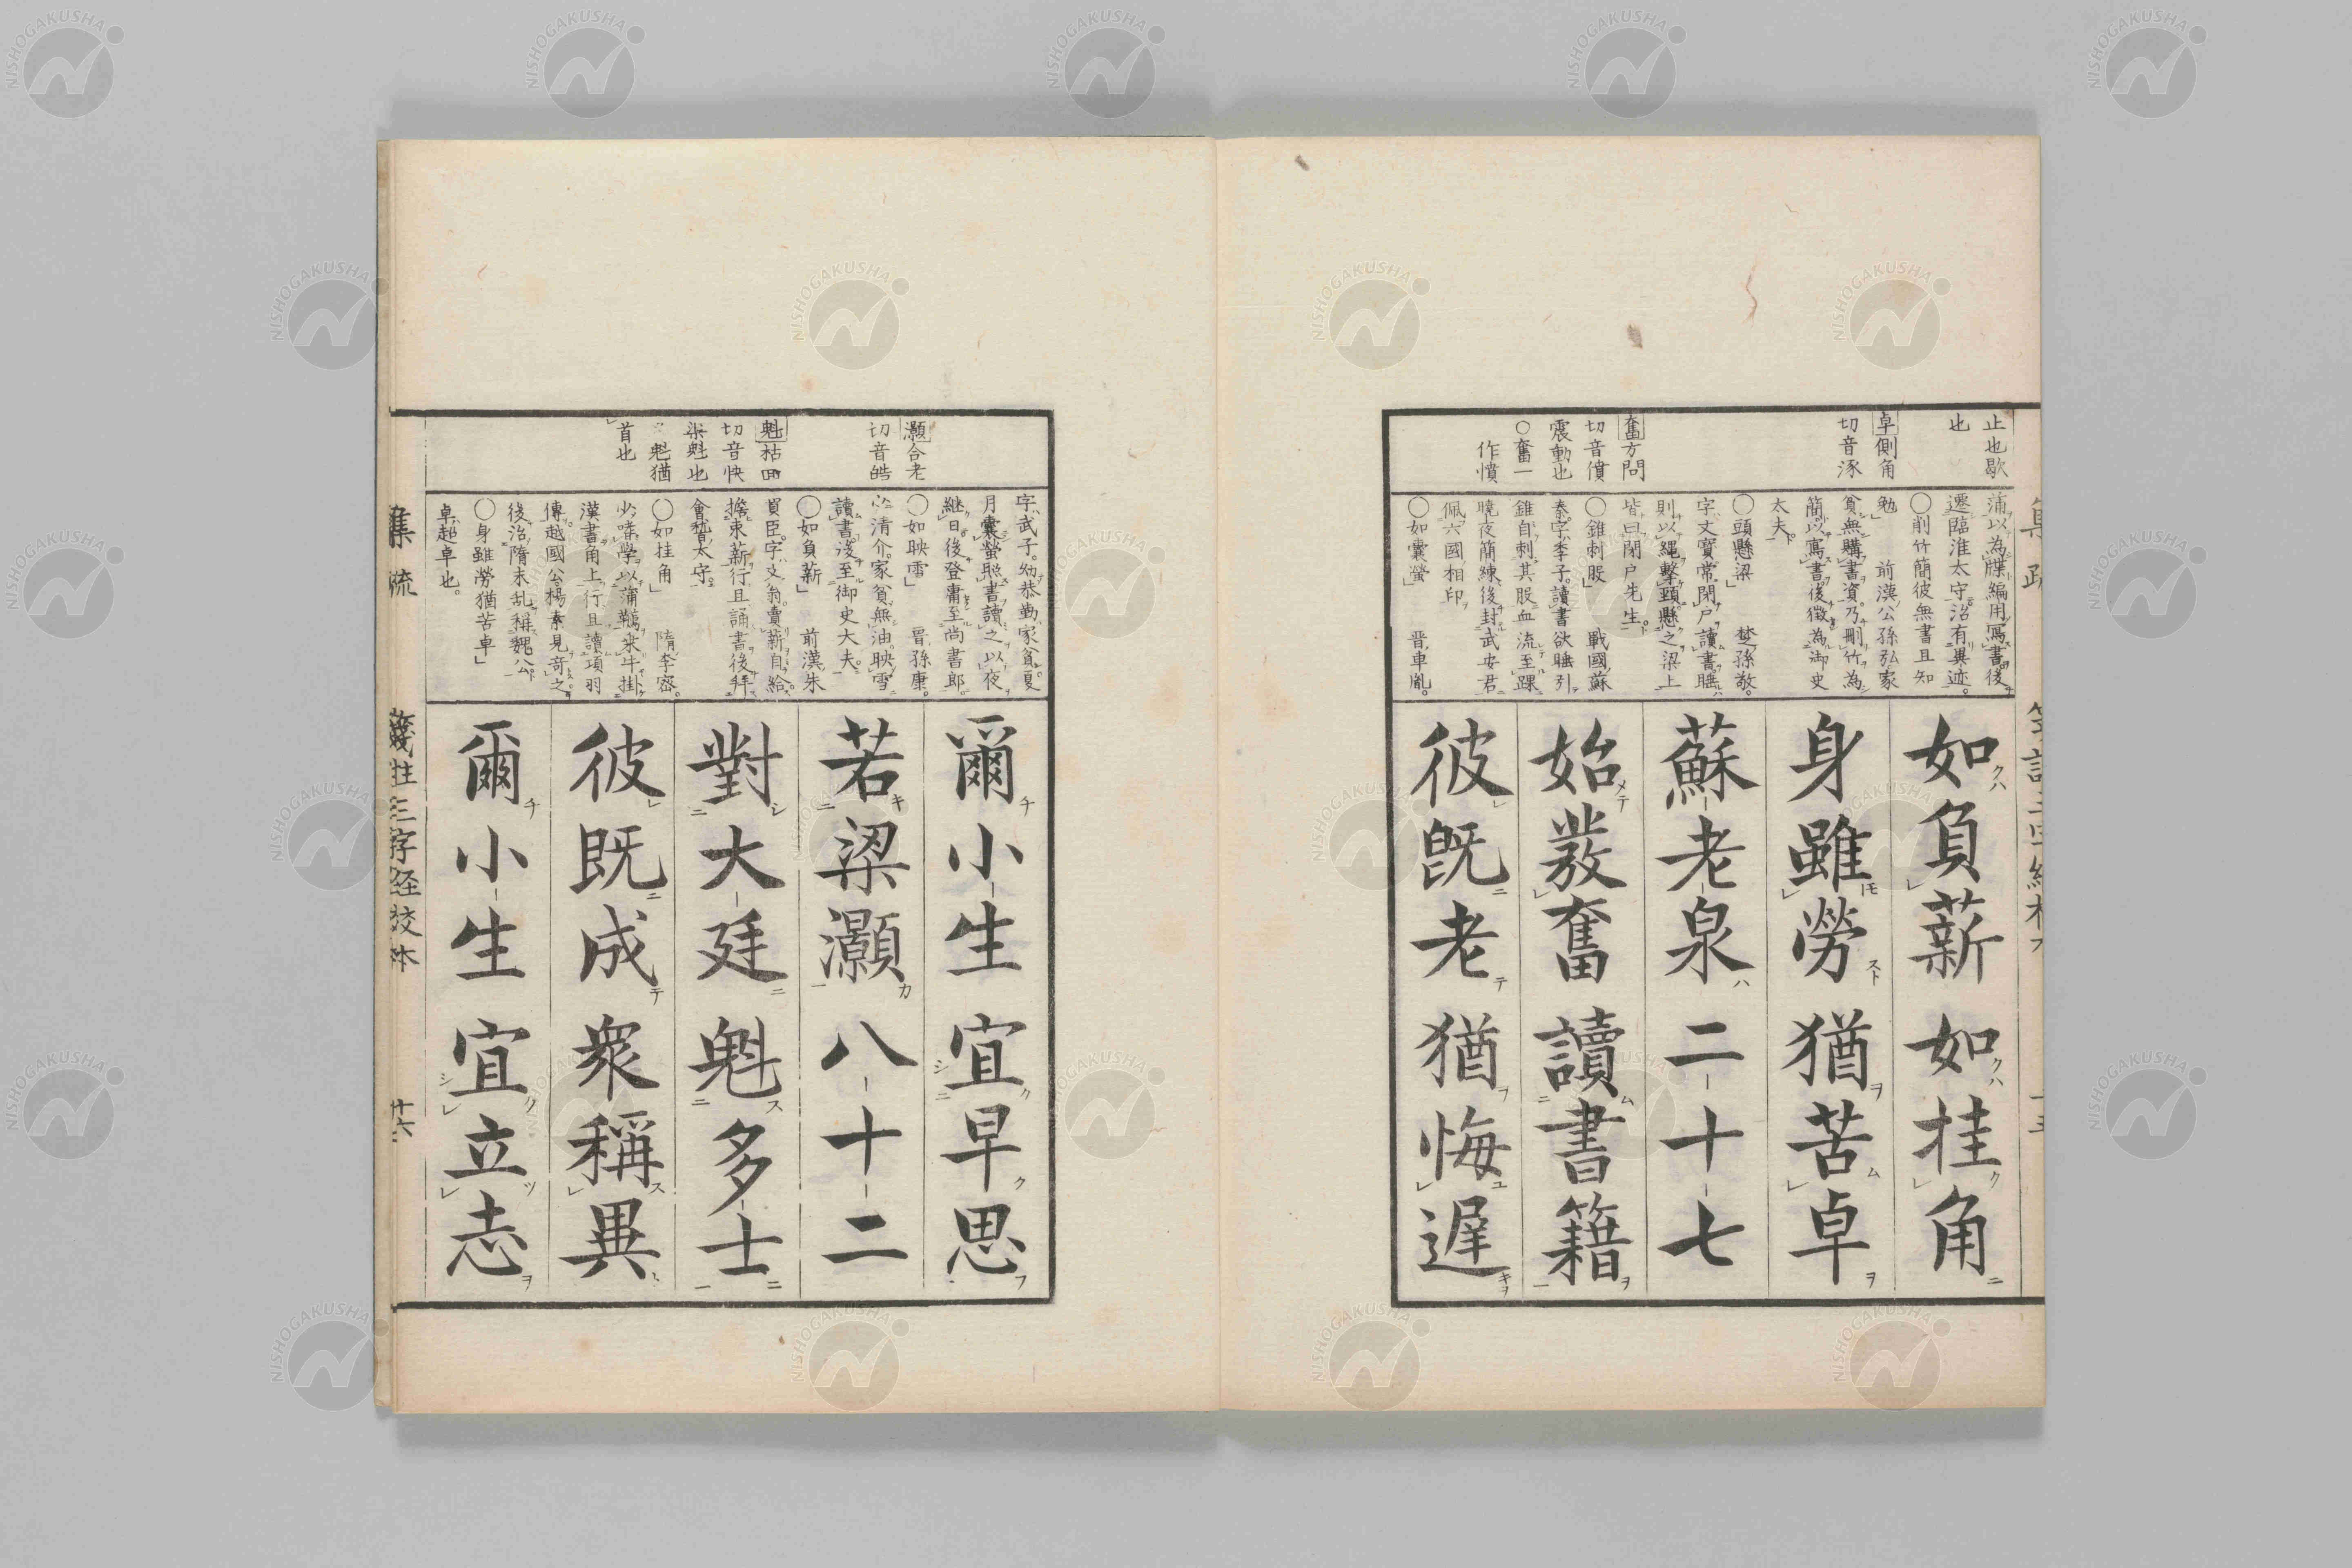 止也歇
也
卓側角
切音涿
奮方問
切音僨
震動也
○奮一
作憤
蒲以為牒編用寫書後
遷臨淮太守治有異迹
○削竹簡彼無書且知
勉 前漢公孫弘家
貧無購書資乃刪竹為
簡以寫書後徵為御史
太夫
○頭懸梁 楚孫敬
字文寶常閉戸讀書睡
則以繩擊頸懸之梁上
皆曰閉戸先生
○錐刺股 戰國蘇
秦字季子讀書欲睡引
錐自刺其股血流至踝
曉夜簡練後封武安君
佩六國相印
○如囊螢 晋車胤
如負薪 如挂角
身雖勞 猶苦卓
蘇老泉 二十七
始發奮 讀書籍
彼既老 猶悔遲
灝合老
切音皓
魁枯回
切音恢
渠魁也
魁猶
首也
字武子幼恭勤家貧夏
月囊螢照書讀之以夜
継日後登庸至尚書郎
○如映雪 晋孫康
清介家貧無油映雪
讀書後至御史大夫
○如負薪 前漢朱
買臣字文翁賣薪自給
擔束薪行且誦書後拜
會稽太守
○如挂角 隋李密
少嗜學以蒲韉乘牛掛
漢書角上行且讀項羽
傳越國公楊素見竒之
後治隋末乱稱魏公
○身雖勞猶苦卓
卓超卓也
爾小生 宜早思
若梁灝 八十二
對大廷 魁多士
彼既成 衆稱異
爾小生 宜立志
集疏 箋註三字経校本 十六
NISHOGAKUSHA